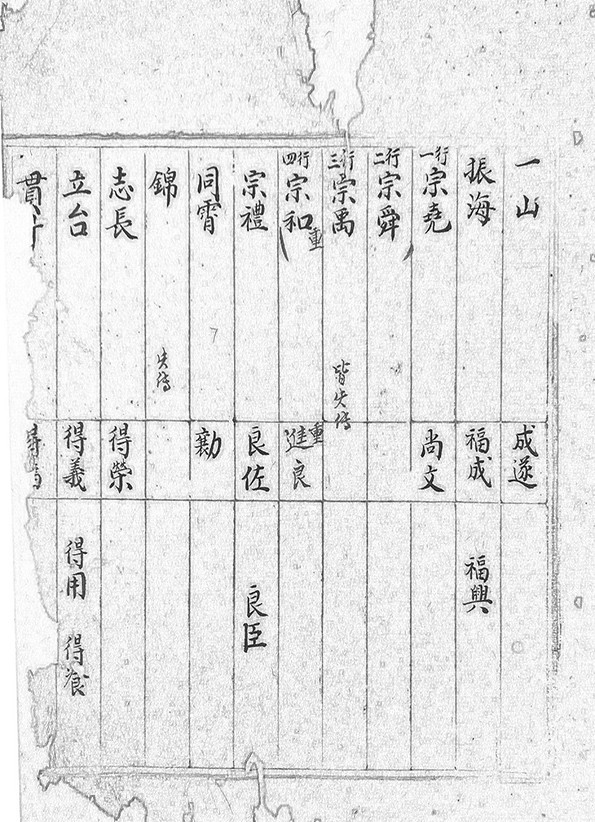 一山 成遂
振海 福成 福興
一行宗堯 尚文
二行宗舜
三行宗禹 皆失傳
四行宗和 重 重進良
宗禮 良佐 良臣
同霄 勷
錦 失傳
志長 得榮
立台 得義 得用 得飡
貫